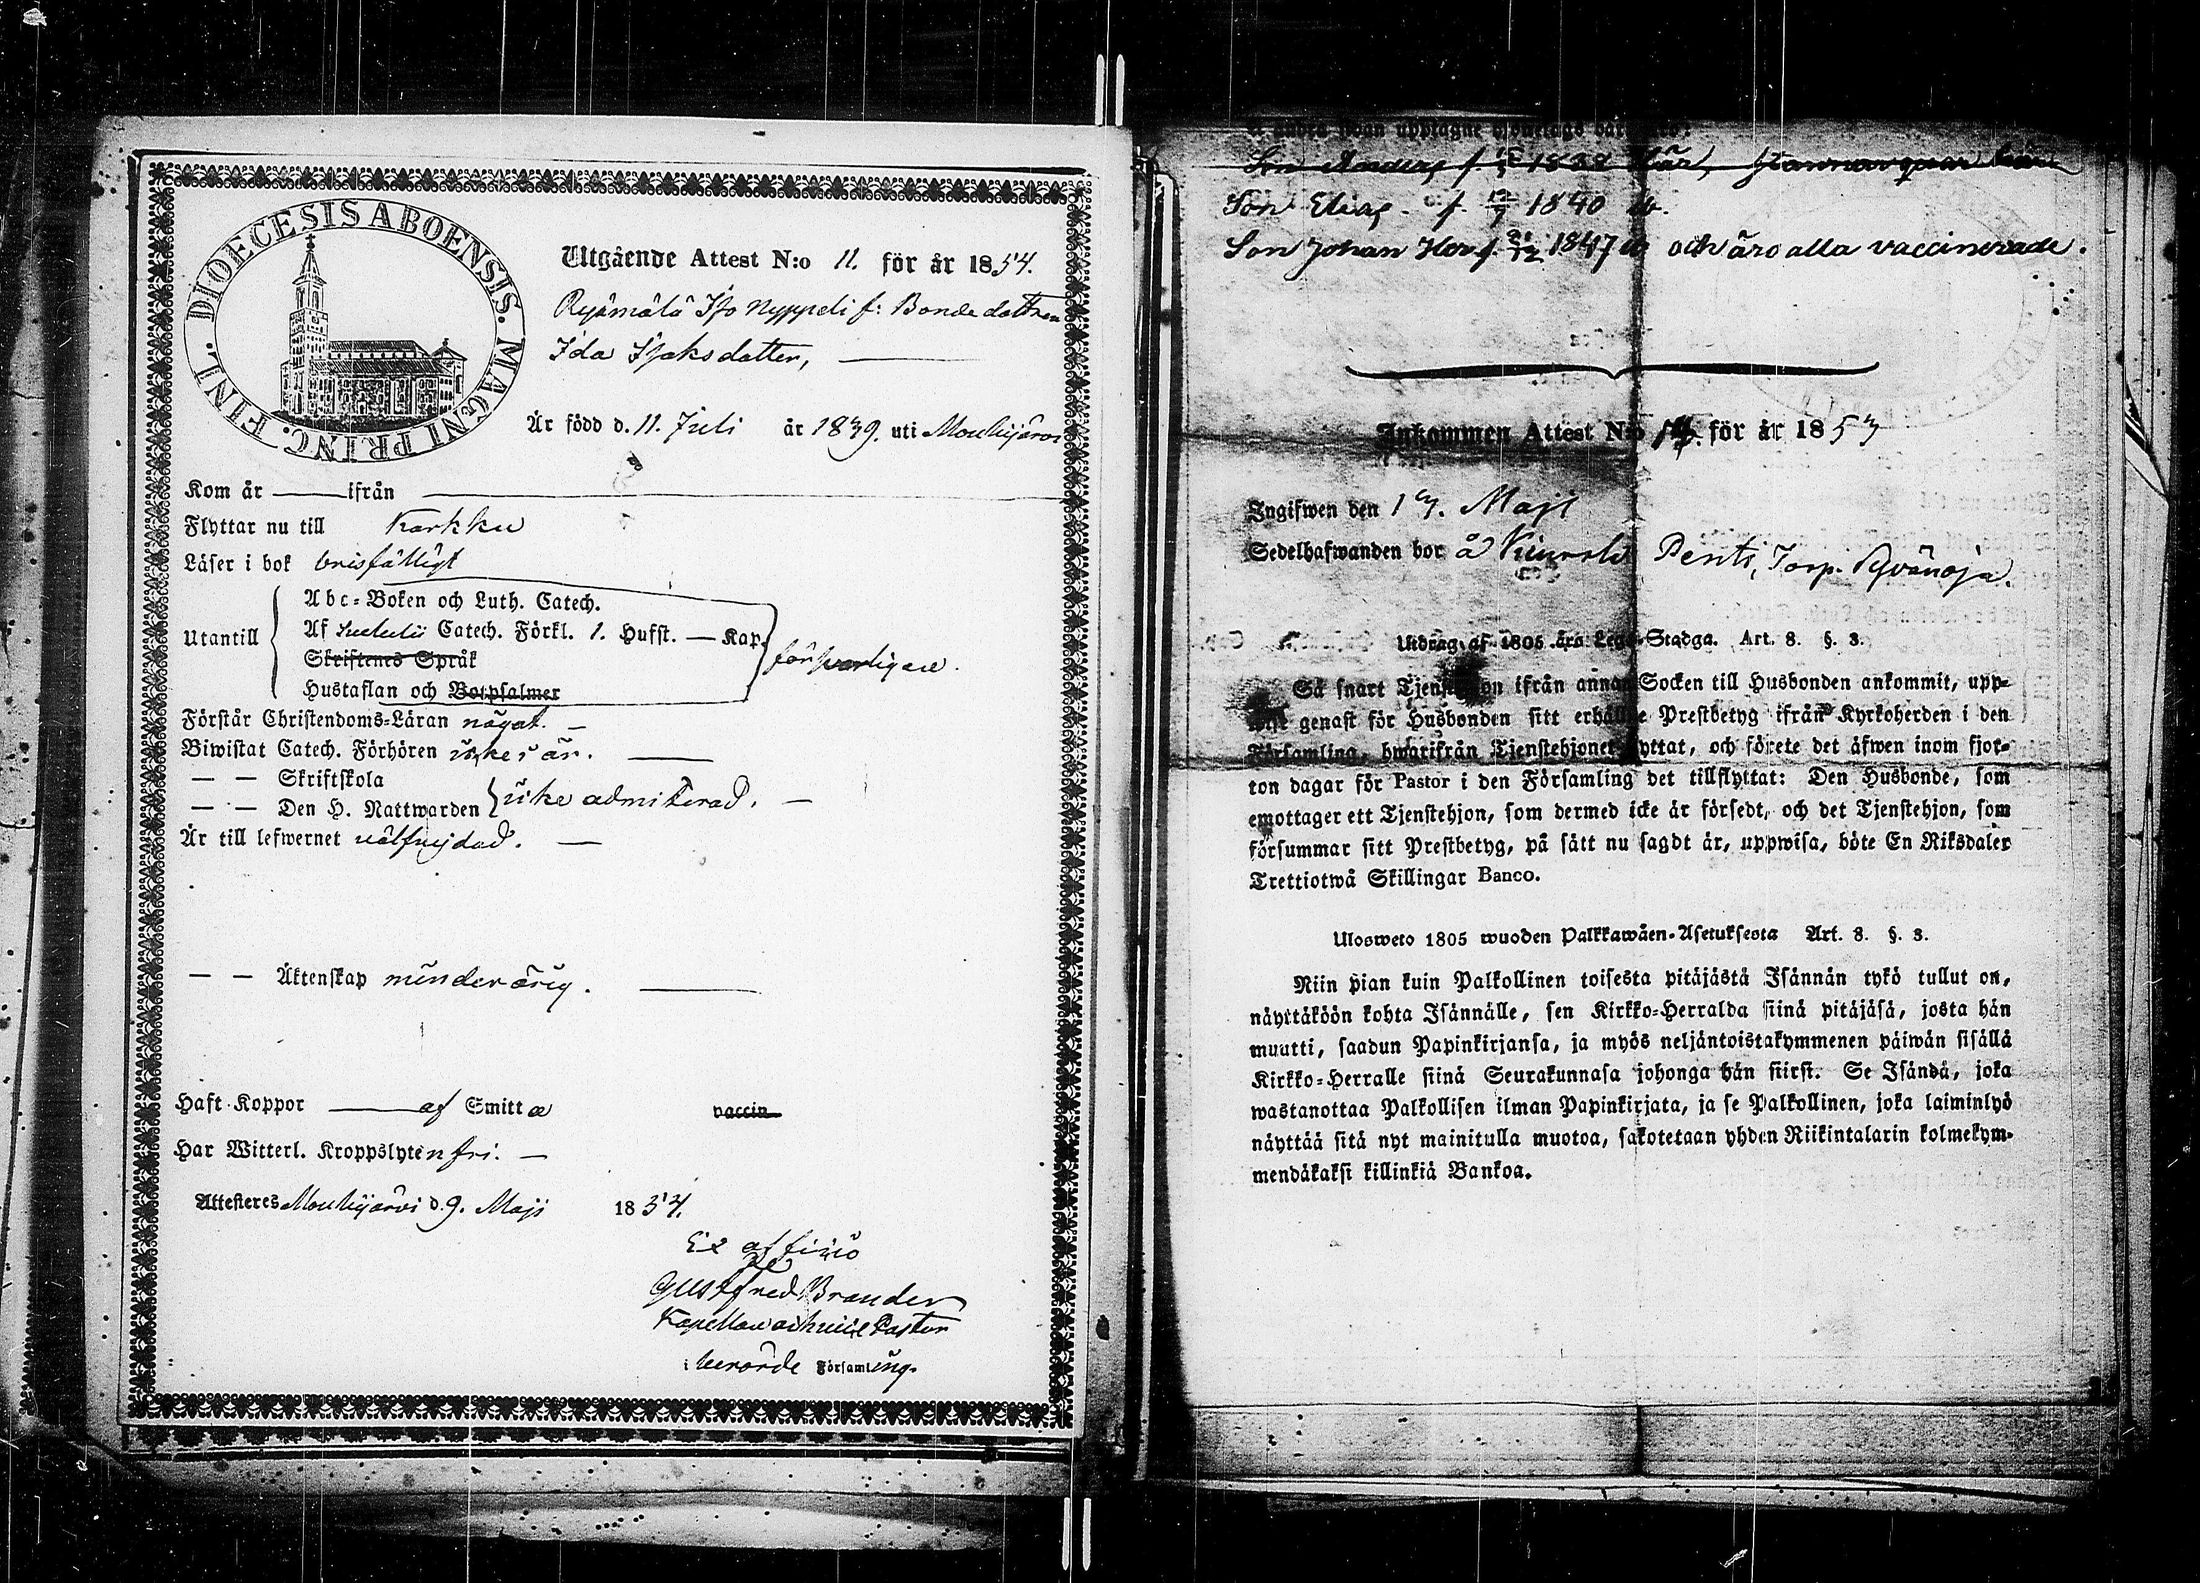 DIOECESIS ABOENSIS. MAGNI PRINC. FINL.
Utgående Attest N:o 11. för år 1854.
Ryömälä Nyppeli f: Bonde dottren
Ida Isaksdotter,
Är född d. 11. Juli år 1839. uti Mouhijärvi
Kom år — ifrån —
Flyttar nu till Karkku
Läser i bok
Utantill
Abc-Boken och Luth. Catech.
Af Catech. Förkl. 1. Hufst. — Kap.
Skriftenes Språk
Hustaflan och Botpsalmer
försvarligare.
Förstår Christendoms-Läran något. —
Biwistat Catech. Förhören år. —
— — Skriftskola
— — Den H. Nattwarden
icke admitterad. —
Är till lefwernet välfrejdad. —
— — Äktenskap minderårig. —
Haft Koppor — af Smitta vaccin.
Har Witterl. Kroppslyten fri. —
Attesteres Mouhijärvi d. 9. Maji 1854.
Ex officio
Gust Fred Brander
Kapellan och vice Pastor
i berörde Församling.
Son Anders f. 1838
Son Elias f. 12/7 1840 do.
Son Johan f. 21/12 1847 do och äro alla vaccinerade.
Inkommen Attest N:o för år 1853
Ingifwen den 17. Maji
Sedelhafwanden bor å Kiurala Pentti, Torp.
Utdrag af 1805 års Lego-Stadga. Art. 8. §. 3.
Så snart Tjenstehjon ifrån annan Socken till Husbonden ankommit, upp-
wise genast för Husbonden sitt erhållne Prestbetyg ifrån Kyrkoherden i den
Församling, hwarifrån Tjenstehjonet flyttat, och förete det äfwen inom fjor-
ton dagar för Pastor i den Församling det tillflyttat: Den Husbonde, som
emottager ett Tjenstehjon, som dermed icke är försedt, och det Tjenstehjon, som
försummar sitt Prestbetyg, på sätt nu sagdt är, uppwisa, böte En Riksdaler
Trettiotwå Skillingar Banco.
Uloswето 1805 wuoden Palkkawäen-Asetuksesta Art. 8. §. 3.
Niin pian kuin Palkollinen toisesta pitäjästä Isännän tykö tullut on,
näyttäköön kohta Isännälle, sen Kirkko-Herralda siinä pitäjäsä, josta hän
muutti, saadun Papinkirjansa, ja myös neljäntoistakymmenen päiwän sisällä
Kirkko-Herralle siinä Seurakunnasa johonga hän siirsi. Se Isändä, joka
wastanottaa Palkollisen ilman Papinkirjata, ja se Palkollinen, joka laiminlyö
näyttää sitä nyt mainitulla muotoa, sakotetaan yhden Riikintalarin kolmekym-
mendäkaksi killinkiä Bankoa.